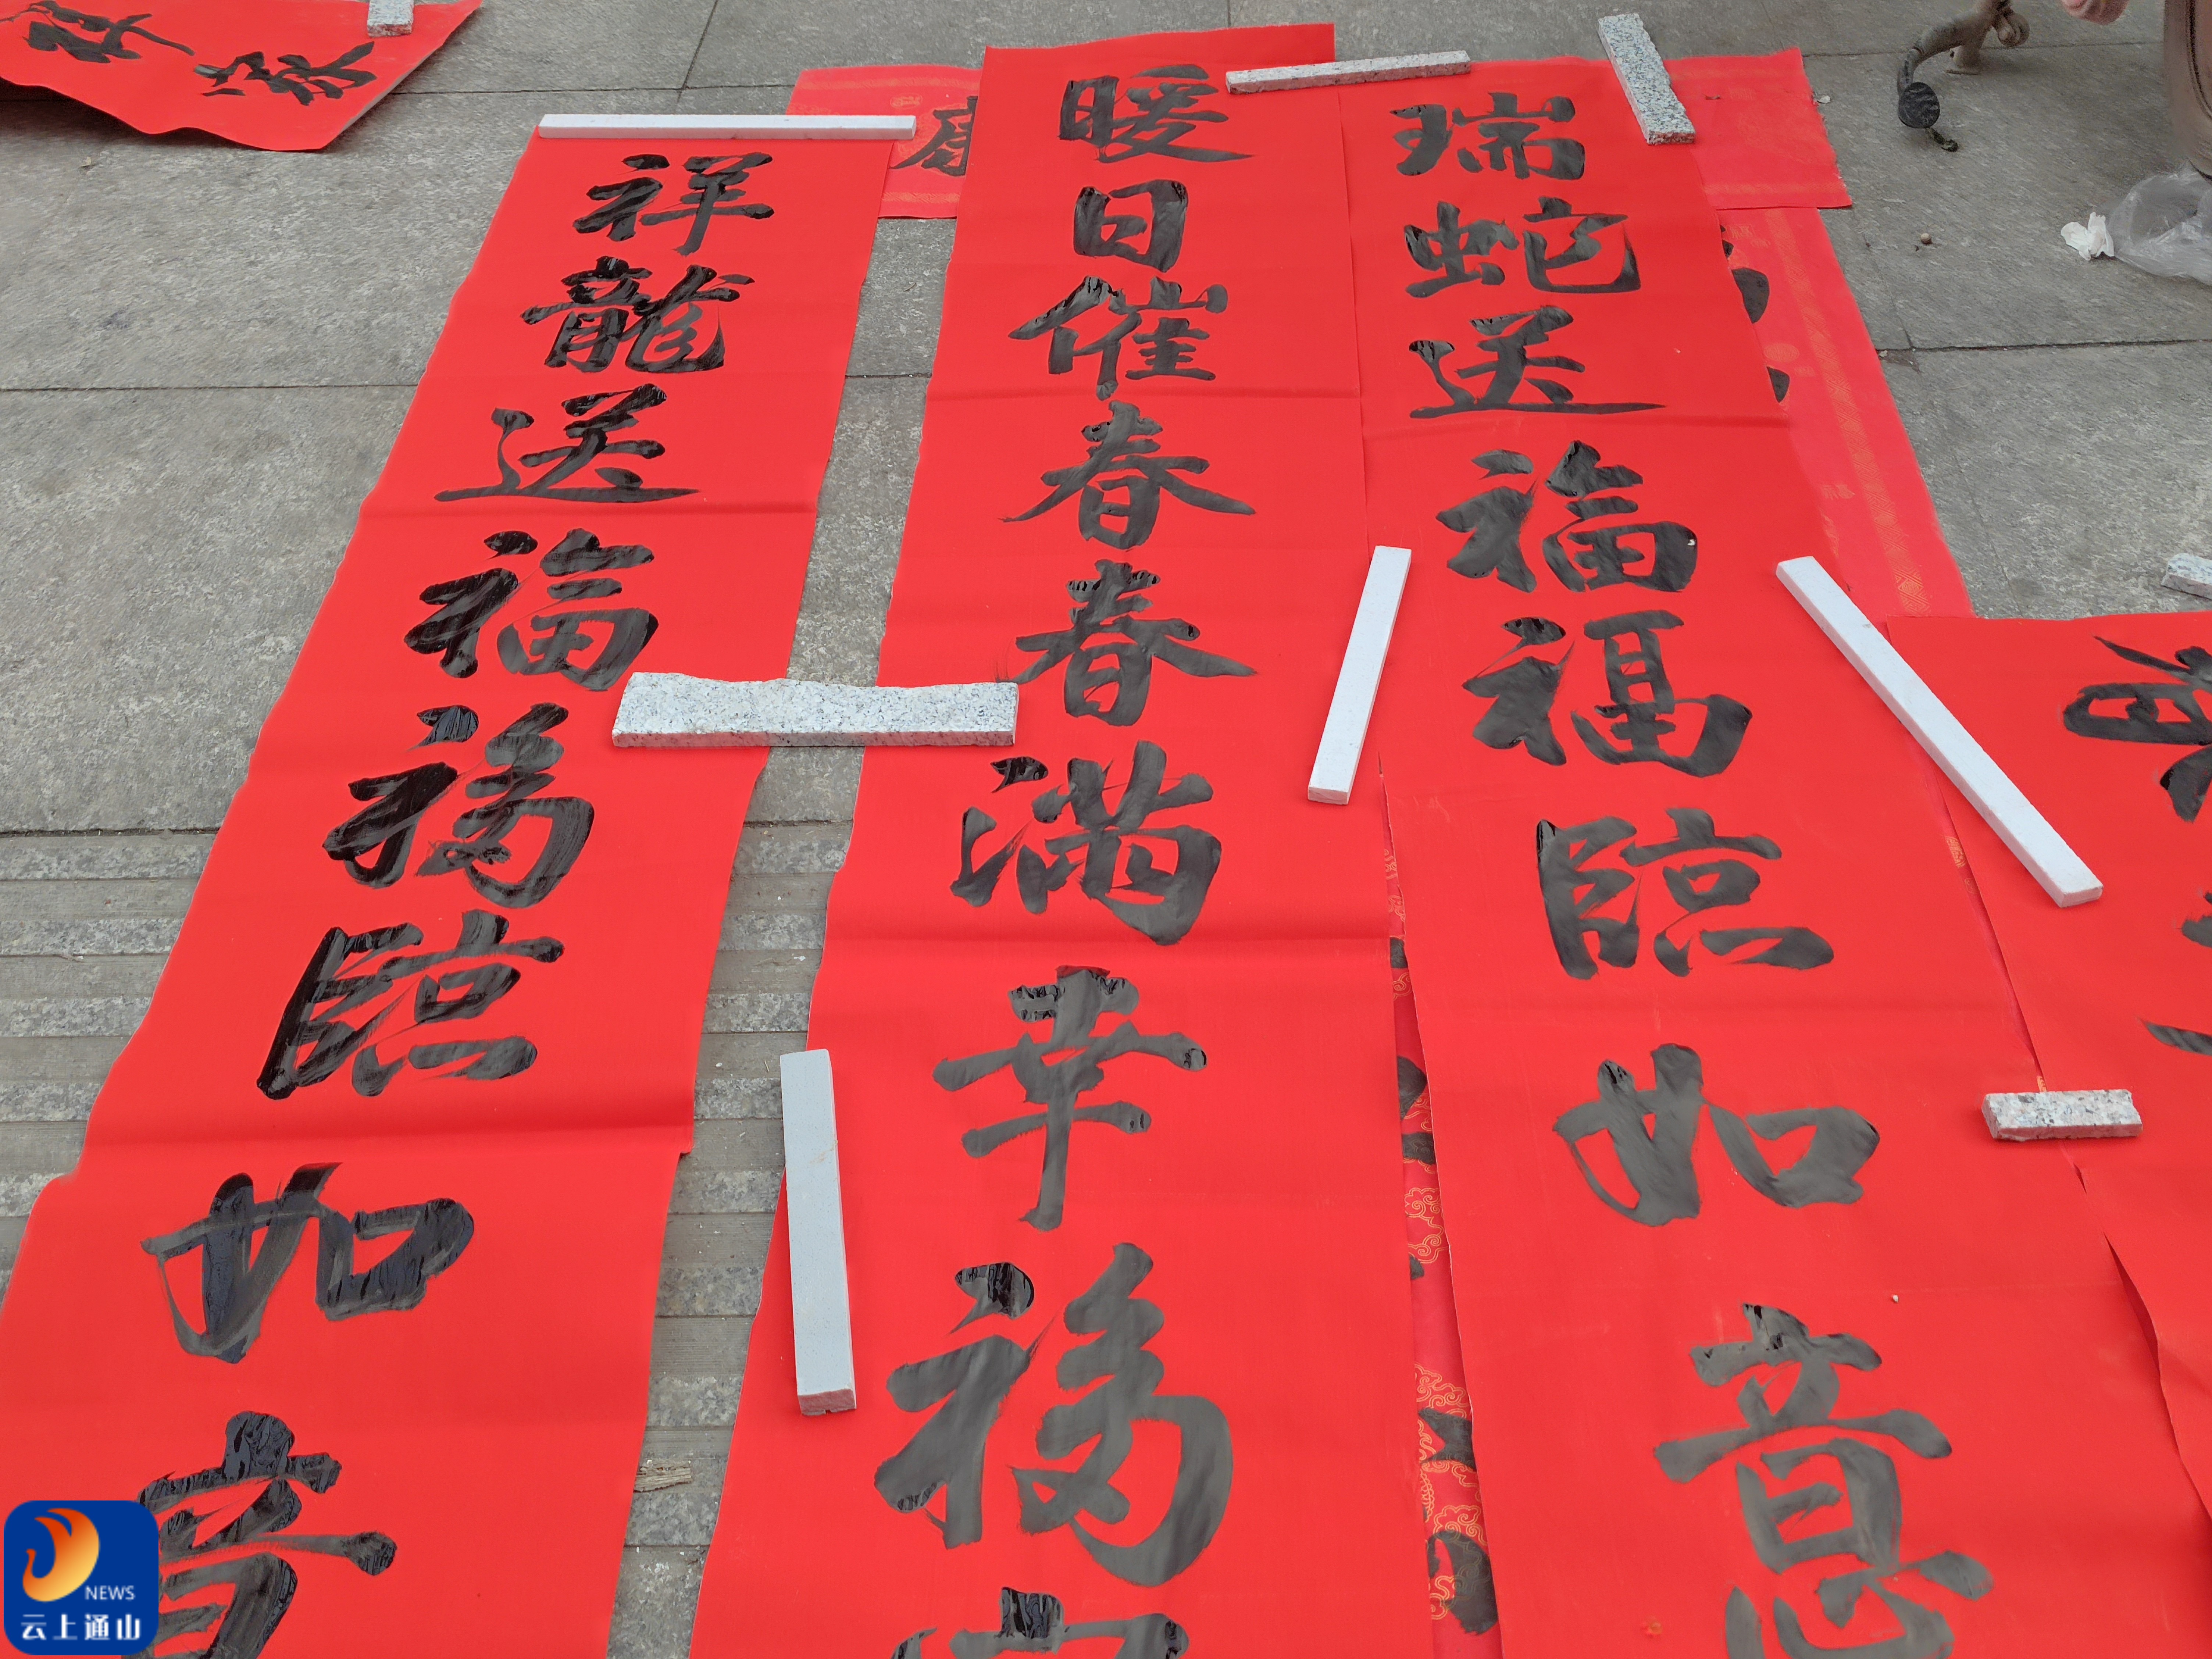 瑞蛇送福福臨如意
暖日催春春满幸福
祥龍送福福臨如意
康
NEWS
云上通山